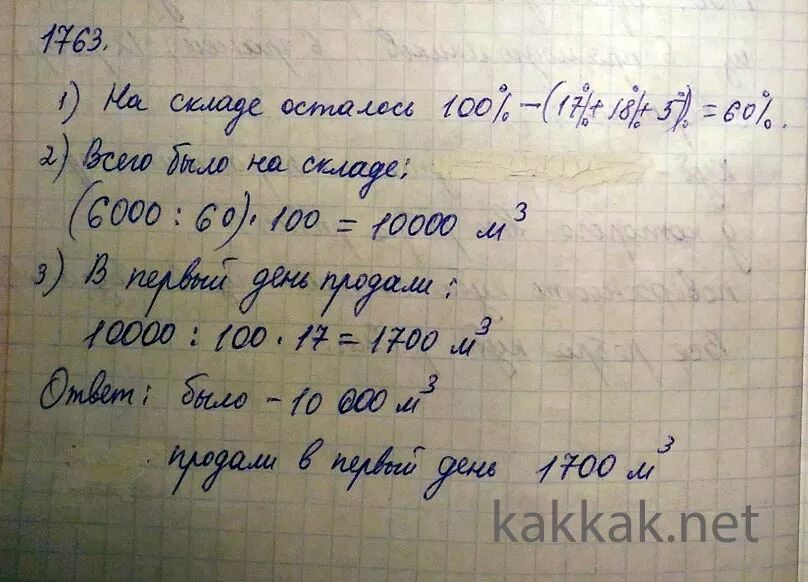 1763.
1) На складе осталось 100% - (17% + 18% + 5%) = 60%.
2) Всего было на складе:
(6000 : 60) · 100 = 10000 м³
3) В первый день продали:
10000 : 100 · 17 = 1700 м³
Ответ: было - 10 000 м³
продали в первый день 1700 м³
kakkak.net